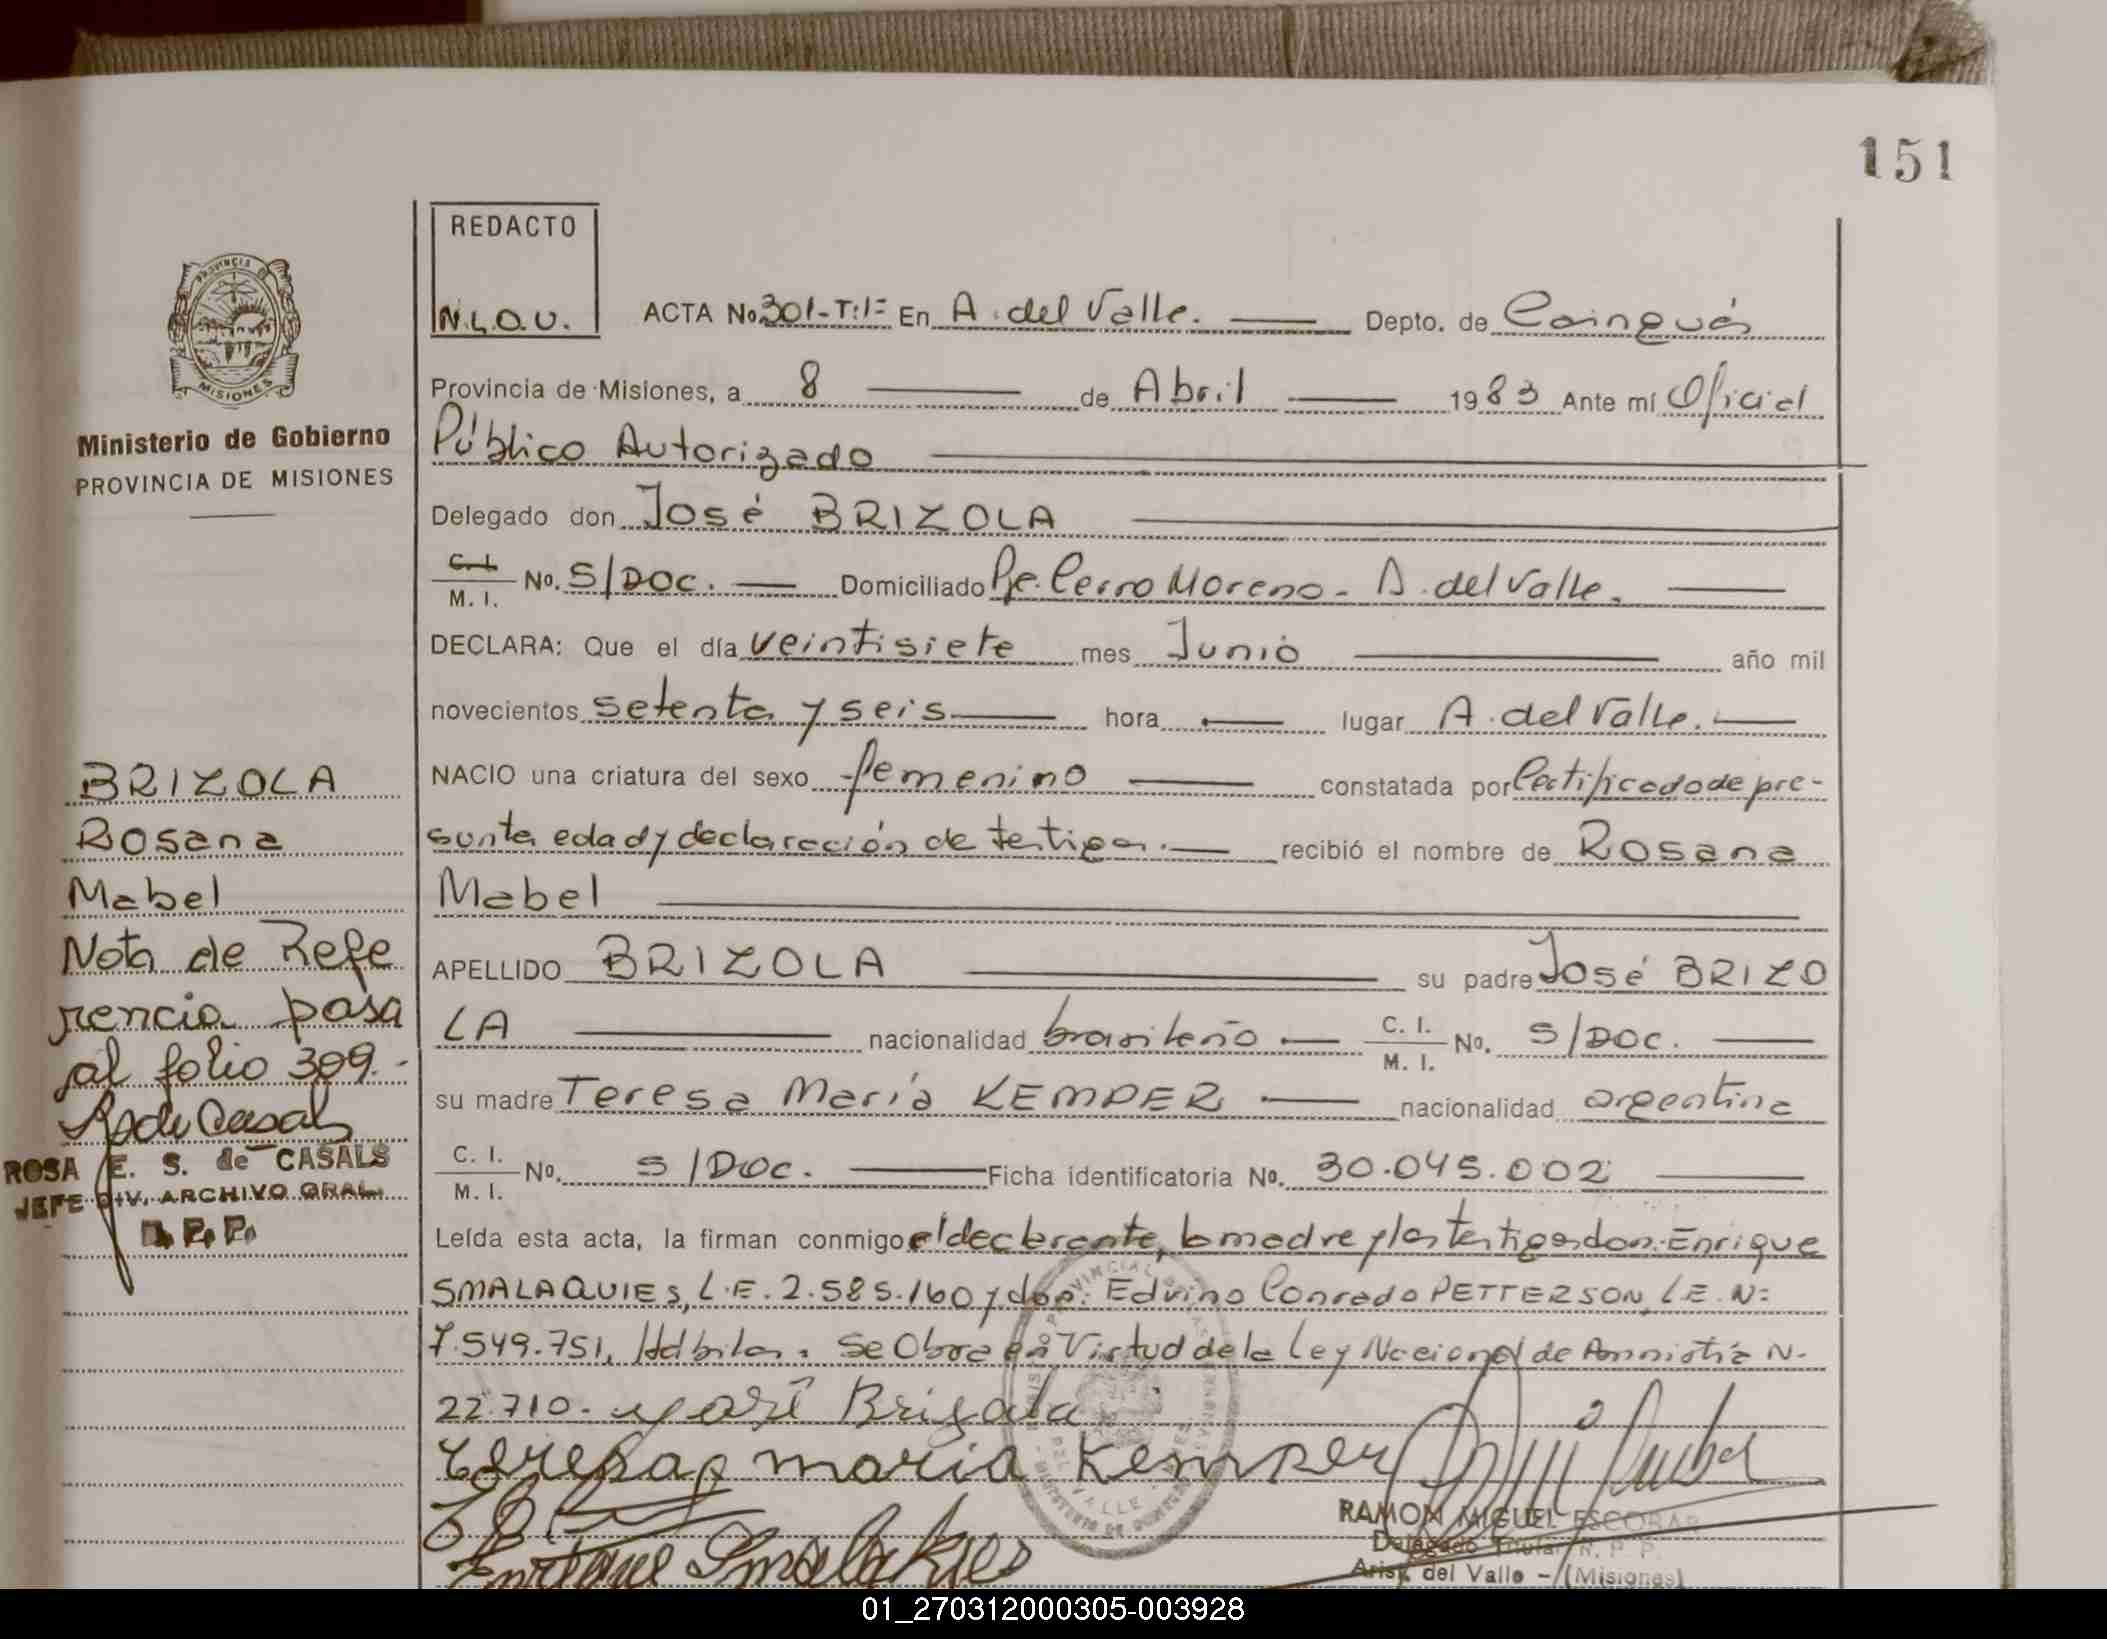 151
REDACTO
N.L.O.U.
ACTA No 301-T:1= En A. del Valle. Depto. de Cainguás
Provincia de Misiones, a 8 de Abril 1983 Ante mí Oficial
Público Autorizado
Delegado don José BRIZOLA
C. I. M. I. No. S/DOC. Domiciliado Pje. Cerro Moreno - A. del Valle.
DECLARA: Que el día veintisiete mes Junio año mil
novecientos setenta y seis hora lugar A. del Valle.
NACIO una criatura del sexo femenino constatada por Certificado de pre-
sunta edad y declaración de testigos. recibió el nombre de Rosana
Mabel
APELLIDO BRIZOLA su padre José BRIZO
LA nacionalidad brasileño C. I. M. I. No. S/DOC.
su madre Teresa María KEMPER nacionalidad argentina
C. I. M. I. No. S/DOC. Ficha identificatoria No. 30.045.002
Leída esta acta, la firman conmigo el declarante, la madre y los testigos don: Enrique
SMALAQUIES, L.E. 2.585.160 y don: Edvino Conrado PETTERSON, L.E. N:
7.549.751, Hábiles. Se Obra en Virtud de la Ley Nacional de Amnistía N.
22.710.- José Brizola
Teresa maria Kemper
Enrique Smalakies
RAMON MIGUEL ESCOBAR
Delegado Titular R. P. P.
Arist. del Valle - (Misiones)
PROVINCIA
MISIONES
Ministerio de Gobierno
PROVINCIA DE MISIONES
BRIZOLA
Rosana
Mabel
Nota de Refe
rencia pasa
al folio 309.-
ROSA E. S. de CASALS
JEFE DIV. ARCHIVO GRAL.
01_270312000305-003928